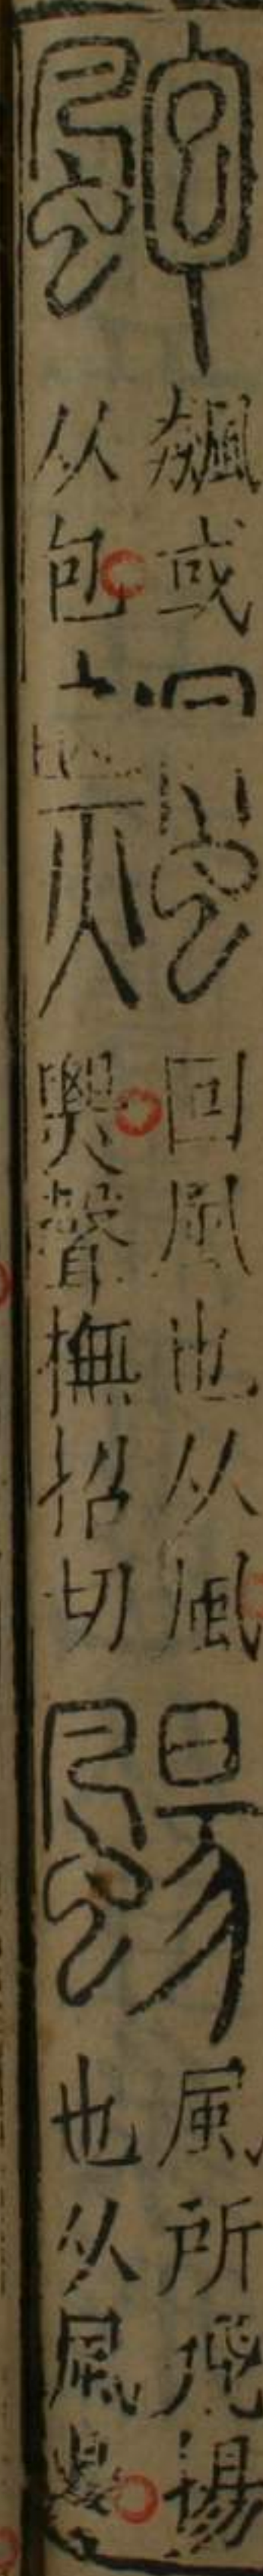 颮
飆或
从包
飄
回風也从風
㶾聲撫招切
颺
風所飛揚
也从風昜